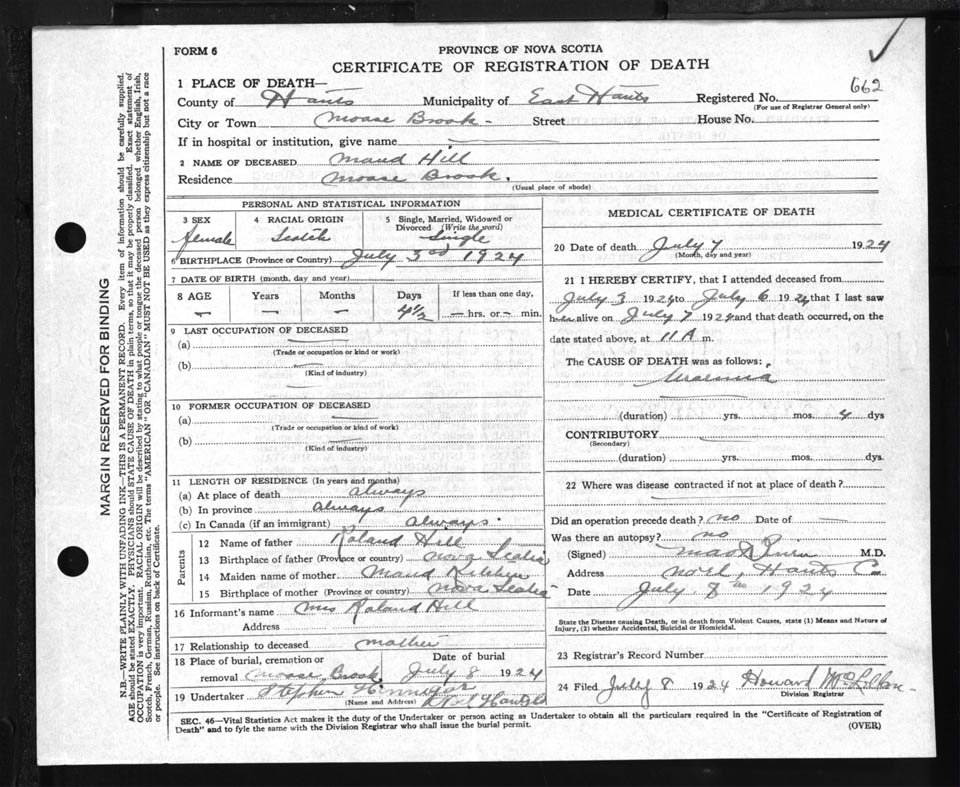 FORM 6
PROVINCE OF NOVA SCOTIA
CERTIFICATE OF REGISTRATION OF DEATH
662
1 PLACE OF DEATH—
County of Hants Municipality of East Hants Registered No.
(For use of Registrar General only)
City or Town Moose Brook - Street House No.
If in hospital or institution, give name
2 NAME OF DECEASED Maud Hill
Residence Moose Brook.
(Usual place of abode)
PERSONAL AND STATISTICAL INFORMATION
3 SEX 4 RACIAL ORIGIN 5 Single, Married, Widowed or
Divorced (Write the word)
female Scotch Single
6 BIRTHPLACE (Province or Country) July 3rd 1924
7 DATE OF BIRTH (month, day and year)
8 AGE Years Months Days If less than one day,
— — 4½ — hrs. or — min.
9 LAST OCCUPATION OF DECEASED
(a)
(Trade or occupation or kind or work)
(b)
(Kind of industry)
10 FORMER OCCUPATION OF DECEASED
(a)
(Trade or occupation or kind of work)
(b)
(Kind of industry)
11 LENGTH OF RESIDENCE (In years and months)
(a) At place of death always
(b) In province always
(c) In Canada (if an immigrant) always.
Parents
12 Name of father Roland Hill
13 Birthplace of father (Province or country) Nova Scotia
14 Maiden name of mother Maud
15 Birthplace of mother (Province or country) Nova Scotia
16 Informant's name Mrs Roland Hill
Address
17 Relationship to deceased mother
18 Place of burial, cremation or Date of burial
removal Moose Brook July 8 1924
19 Undertaker Stephen
(Name and Address)
MEDICAL CERTIFICATE OF DEATH
20 Date of death July 7 1924
(Month, day and year)
21 I HEREBY CERTIFY, that I attended deceased from
July 3 1924 to July 6 1924 that I last saw
her alive on July 7 1924 and that death occurred, on the
date stated above, at 11 A m.
The CAUSE OF DEATH was as follows:
(duration) yrs. mos. 4 dys
CONTRIBUTORY
(Secondary)
(duration) yrs. mos. dys
22 Where was disease contracted if not at place of death?
Did an operation precede death? no Date of —
Was there an autopsy? no
(Signed) M.D.
Address Noel, Hants Co
Date July 8th 1924
State the Disease causing Death, or in death from Violent Causes, state (1) Means and Nature of
Injury, (2) whether Accidental, Suicidal or Homicidal.
23 Registrar's Record Number
24 Filed July 8 1924 Howard
Division Registrar
SEC. 46—Vital Statistics Act makes it the duty of the Undertaker or person acting as Undertaker to obtain all the particulars required in the "Certificate of Registration of
Death" and to fyle the same with the Division Registrar who shall issue the burial permit.
(OVER)
MARGIN RESERVED FOR BINDING
N.B—WRITE PLAINLY WITH UNFADING INK—THIS IS A PERMANENT RECORD. Every item of information should be carefully supplied.
AGE should be stated EXACTLY. PHYSICIANS should STATE CAUSE OF DEATH in plain terms, so that it may be properly classified. Exact statement of
OCCUPATION is very important. RACIAL ORIGIN will be described by stating to what people or tongue the deceased person belonged whether English, Irish,
Scotch, French, German, Russian, Ruthenian, etc. The terms "AMERICAN" OR "CANADIAN" MUST NOT BE USED as they express citizenship but not a race
or people. See instructions on back of Certificate.